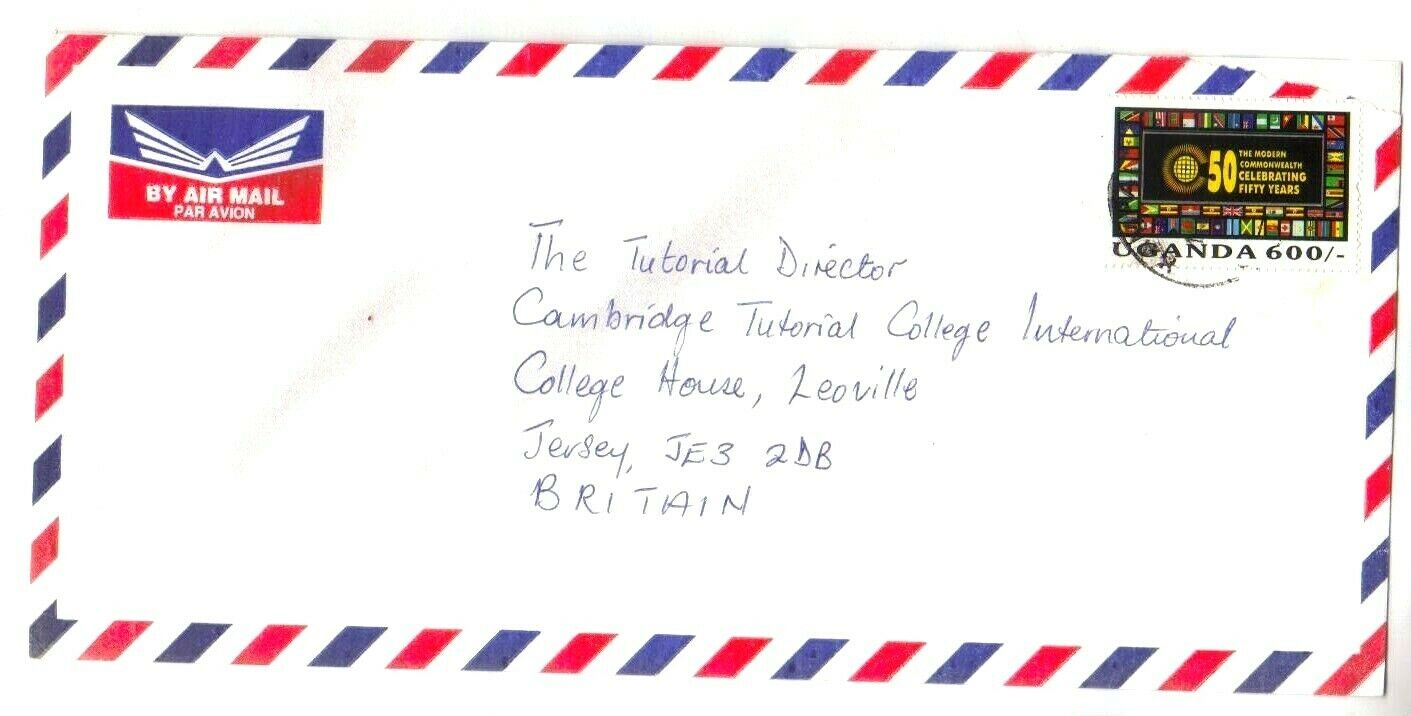 BY AIR MAIL
PAR AVION
50
THE MODERN
COMMONWEALTH
CELEBRATING
FIFTY YEARS
UGANDA 600/-
The Tutorial Director
Cambridge Tutorial College International
College House, Leoville
Jersey, JE3 2DB
BRITAIN